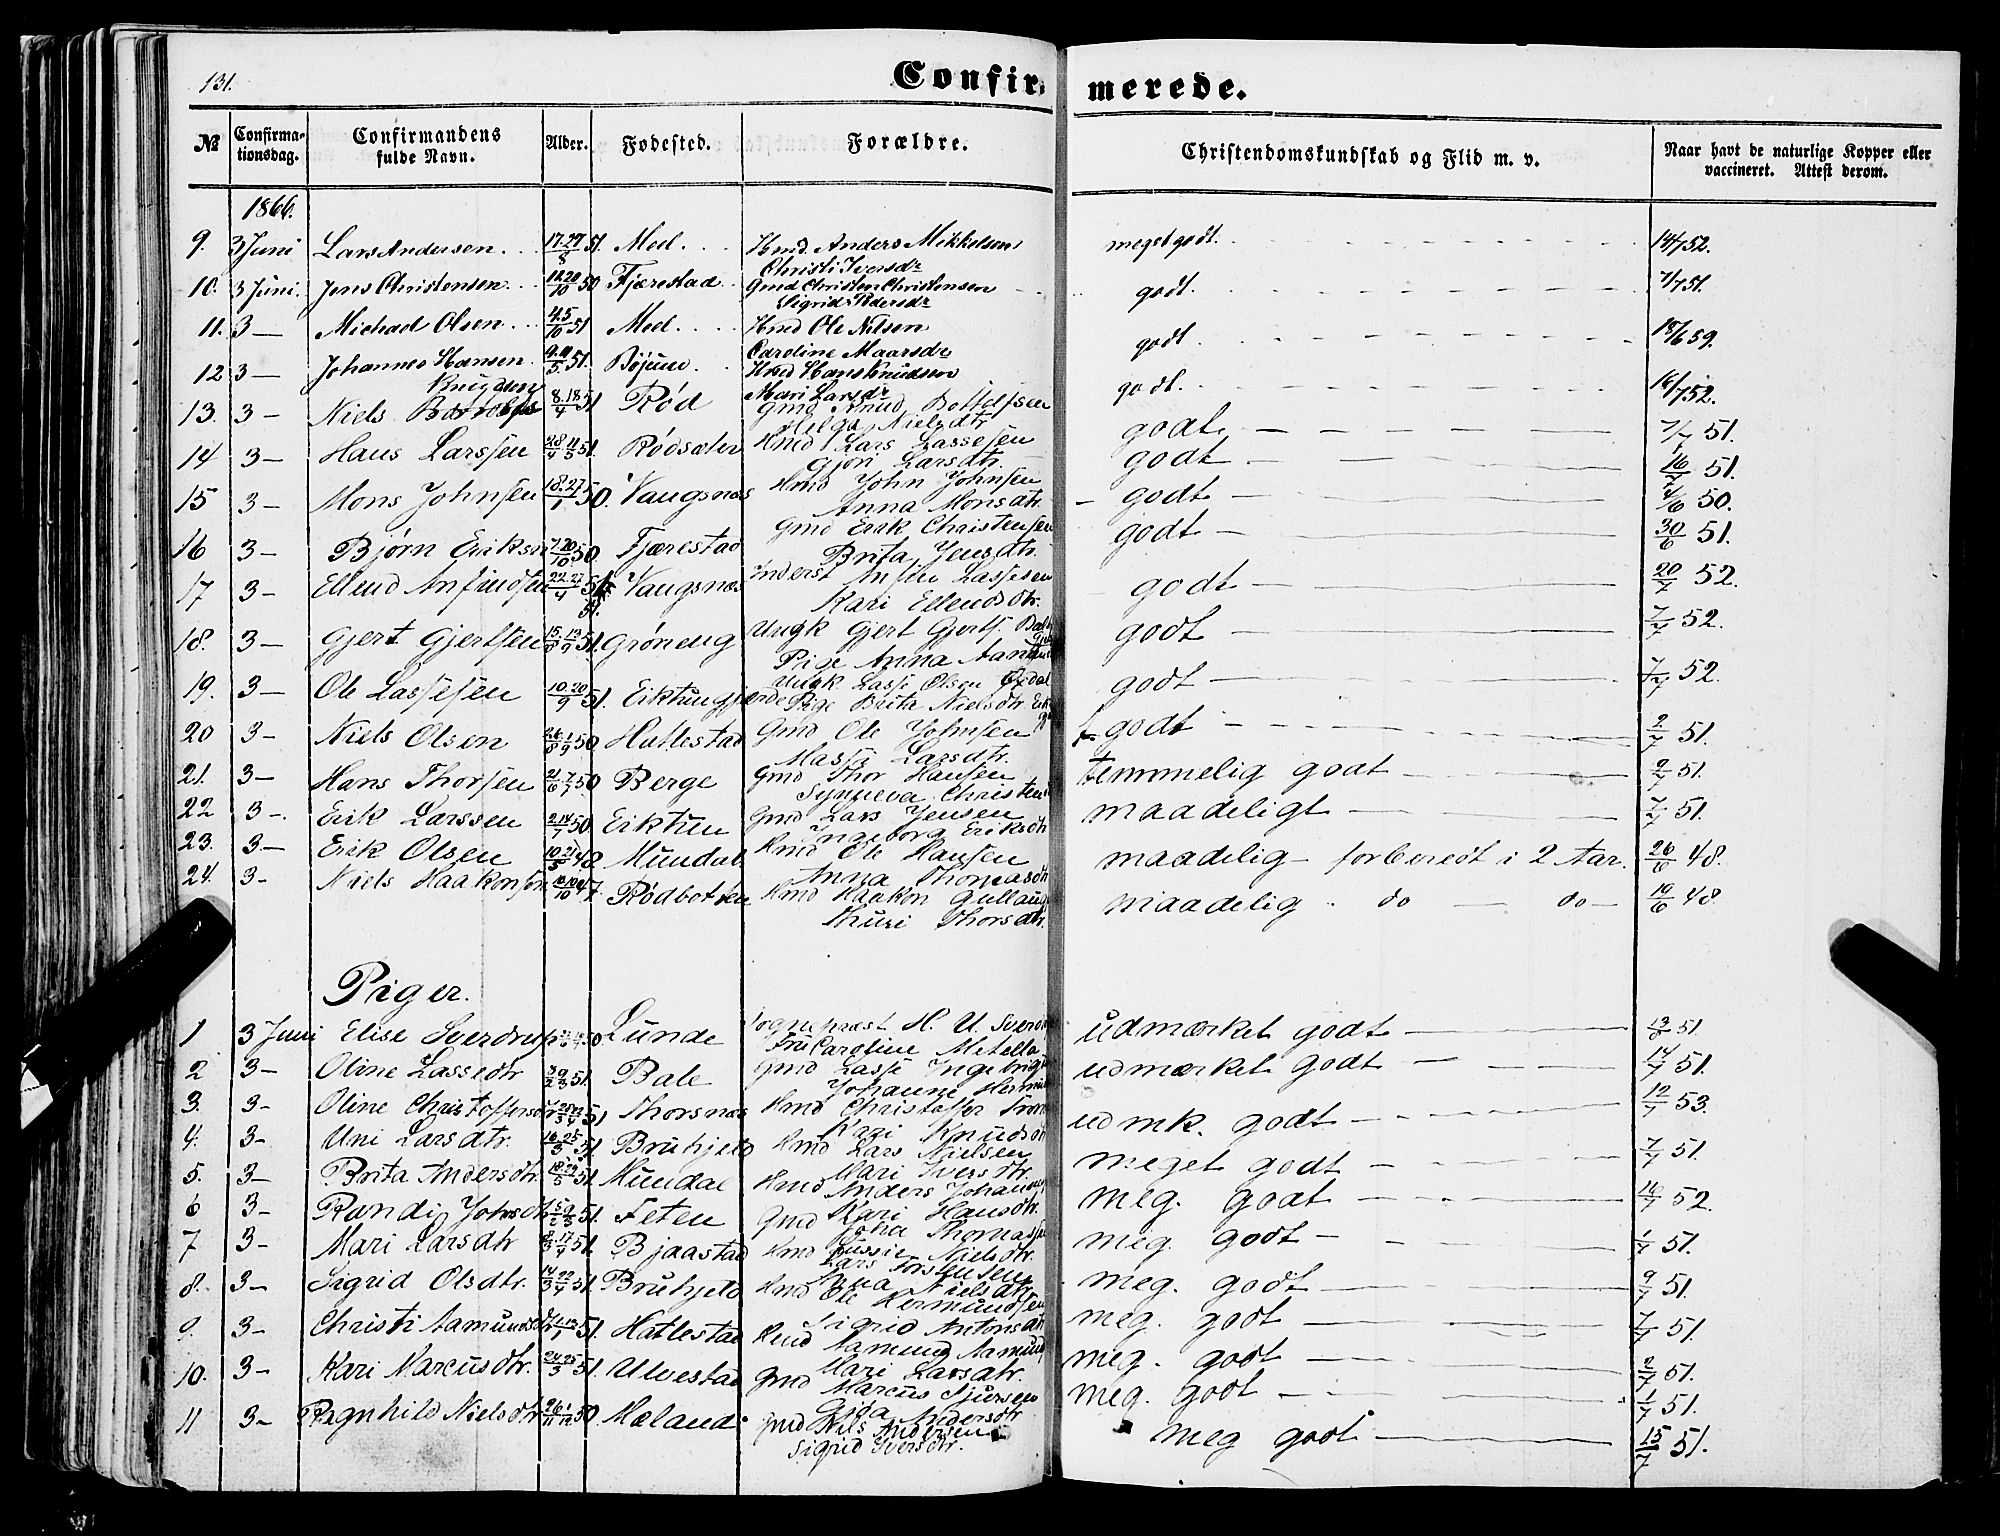 131.
Confir-
merede.
№
Confirma-
tionsdag.
Confirmandens
fulde Navn.
Alder.
Fødested.
Forældre.
Christendomskundskab og Flid m. v.
Naar havt de naturlige Kopper eller
vaccineret. Attest derom.
1866.
9. 3 Juni Lars Andersen 17.27/8 51. Mel. Hmd. Anders Mikkelsen meget godt. 14/7 52.
Christi Iversdr
10. 3 Juni. Jens Christensen 12.20/10 50 Fjærestad Gmd Christen Christensen godt. 7/7 51.
Sigrid Pedersdr
11. 3 — Michael Olsen 4.5/10 51 Mel. Hmd Ole Nilsen godt 18/6 59.
Caroline Maarsdr
12 3 — Johannes Hansen 9.11/5 51. Bøjum Hmd Hans Knudsen godt. 16/7 52.
Mari Larsdr
13. 3 — Niels Knudsen 8.18/4 51 Rød Gmd Knud Botolfsen godt 7/7 51.
Helga Nielsdtr
14 3 — Hans Larssen 28/4 11/5 51. Rødsæter Hmd Lars Lassesen godt 16/7 51.
Gjøri Larsdtr.
15 3 — Mons Johnsen 18.27/1 50. Vangsnæs Hmd John Johnsen godt 4/6 50.
Anna Monsdtr.
16 3 — Bjørn Eriksen 7.20/10 50 Fjærestad Gmd Erik Christensen godt 30/6 51.
Brita Jensdtr.
17 3 — Ellend Anfindsen 22.27/4 51. Vangsnæs Inderst Anfin Lassesen godt 20/7 52.
Kari Ellendsdtr.
18. 3 — Gjert Gjertsen 15/8 13/9 51. Grøneng Ungk Gjert Gjerts. godt 7/7 52.
Pige Anna
19. 3 — Ole Lassesen 10.20/9 51. Eiktungjerde Ungk. Lasse Olsen godt 7/7 52.
Pige Brita Nielsdtr
20 3 — Niels Olsen 26/8 1/9 50 Hatlestad Gmd Ole Johnsen godt 2/7 51.
Massi Larsdtr.
21. 3 — Hans Thorsen 21/6 7/7 50 Berge Gmd Thor Hansen temmelig godt 2/7 51.
Synneva Christens
22 3 —. Erik Larssen 2.14/1 50 Eiktun Gmd Lars Jensen maadeligt 7/7 51.
Ingeborg Eriksdtr
23. 3 — Erik Olsen 10.21/3 48 Mundal Hmd Ole Hansen maadelig — forberedt i 2 Aar. 26/6 48.
Anna Thomasdtr
24. 3 — Niels Haakonsen 10.10/10 47. Rødbotten Hmd Haakon Gullaug maadelig do — do — 10/6 48.
Thuri Thorsdtr.
Piger.
1 3 Juni Elise Sverdrup 50. Lunde Sogneprest H. U. Sverdrup udmærket godt 13/8 51.
Fru Caroline Metella
2 3 — Oline Lassedtr 3/2 9/3 51. Bale Gmd Lasse Ingebrigts udmærket godt 14/7 51.
Johanne Hermunds
3. 3 — Oline Christoffersdtr 51 Thorsnæs Hmd Christoffer udmk. godt 12/7 53.
Kari Knudsdtr
4. 3 — Uni Larsdtr. 16.25/3 51. Bruhjeld Hmd Lars Nielsen meget godt 7/7 51.
Mari Iversdtr.
5. 3 — Brita Andersdtr. 18.29/5 51. Mundal Hmd Anders Johannes meg. godt 16/7 52.
Kari Hansdtr.
6 3 — Randi Johnsdtr 51. Feten Gmd John Thomassen meg. godt 51.
Nielsdtr.
7 3 — Mari Larsdtr 8/3 17/4 51. Bjaastad Hmd Lars Torstensen meg. godt 9/7 51.
Anna Nielsdtr
8. 3 — Sigrid Olsdtr. 14/3 22/4 51. Bruhjeld Hmd Ole Hermundsen meg. godt 7/7 51.
Sigrid Antonsdtr
9. 3 — Christi Aamundsdtr 51. Hatlestad Hmd Aamund Aamunds meg. godt 2/7 51.
Mari Larsdtr.
10. 3 — Kari Marcusdtr. 24.25/3 51. Ulvestad Gmd Marcus Sjursen meg. godt 1/7 51.
Gida Andersdtr
11 3 — Ragnhild Nielsdtr 26/11 1/12 50. Mæland. Gmd Nils Andersen meg godt 15/7 51.
Sigrid Iversdtr.